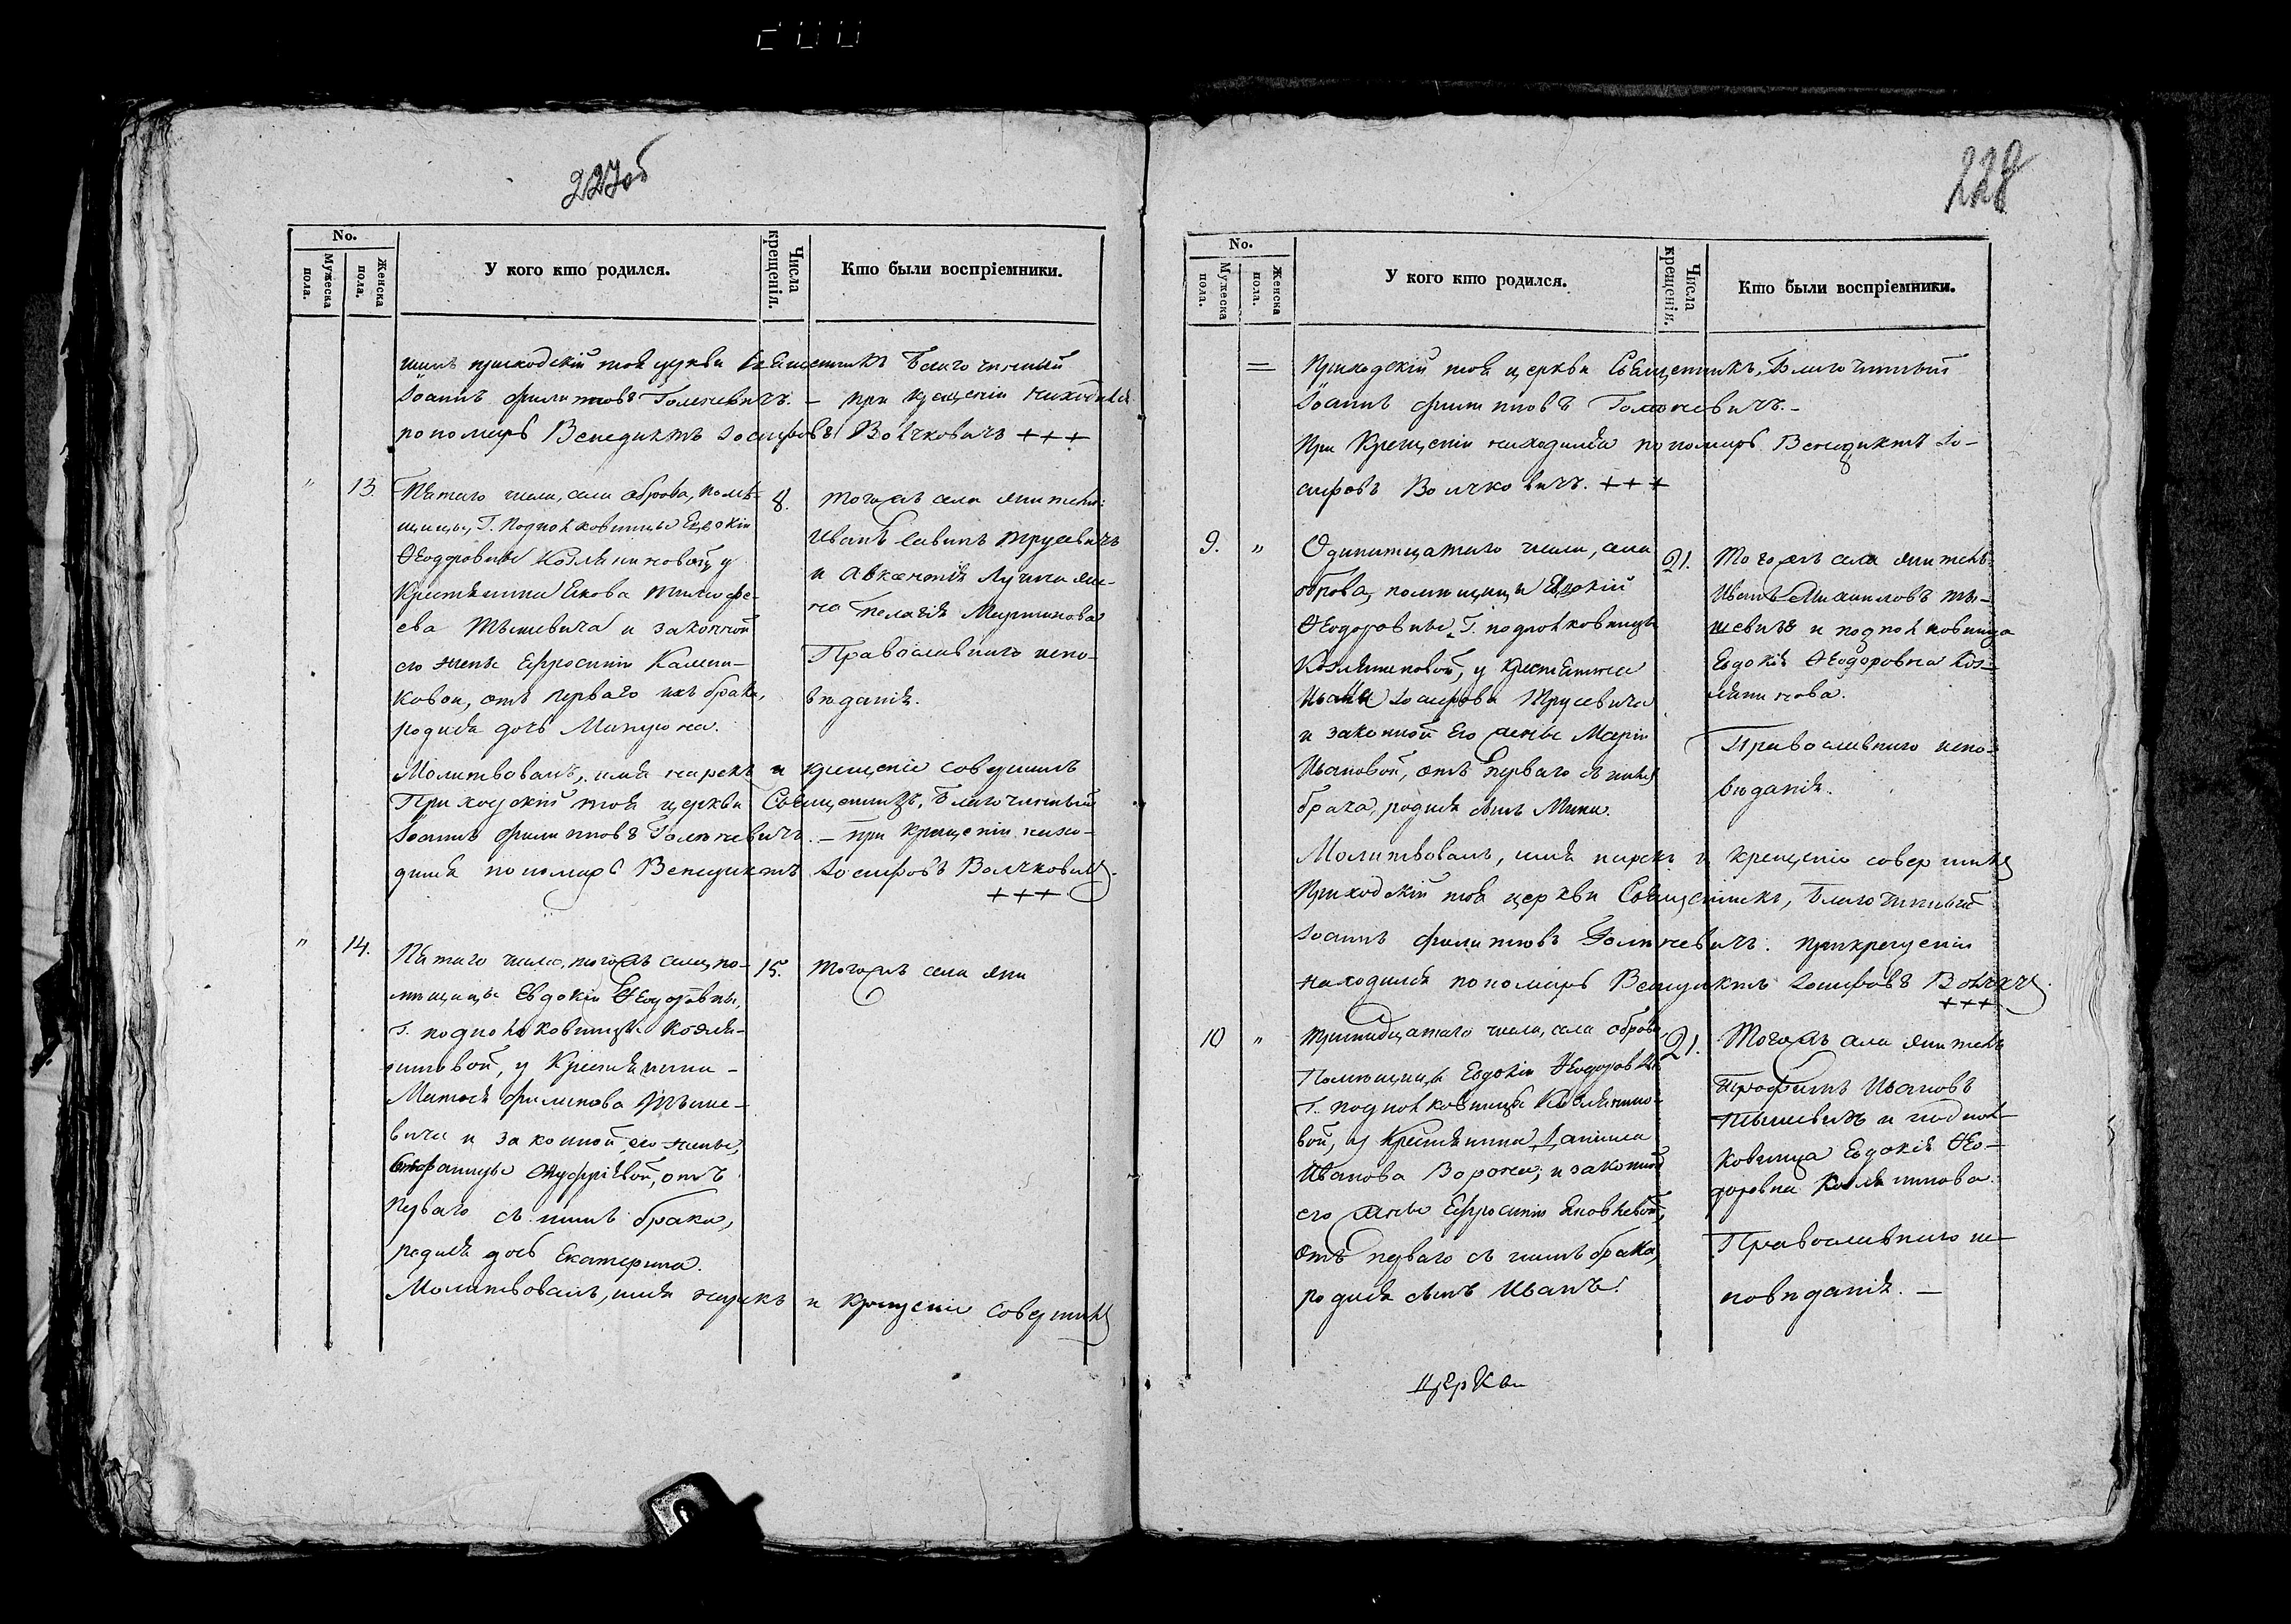 227об
No.
Мужеска пола.
Женска пола.
У кого кто родился.
Числа крещенія.
Кто были воспріемники.
шилъ приходскій тоя церкви Священникъ Благочинный
Іоаннъ Филиповъ Голеневичъ. – при крещеніи находился
пономарь Венедиктъ Іосифовъ Волчковичъ +++
" 13.
Пятаго числа, села Оброва, помѣ-
щицы, Г. Подполковницы Евдокіи
Ѳеодоровны Козляниновой, у
Крестьянина Якова Тимофе-
ева Тышевича и законной
его жены Ефросиніи
отъ перваго ихъ брака,
родися дочь
8.
тогожъ села жители:
Иванъ Савинъ Трусевичъ
и Авксентія Лучина же-
на Пелагія Мартинова
Православнаго испо-
вѣданія.
Молитвовалъ, имя нарекъ и крещеніе совершилъ
Приходскій тоя церкви Священникъ, Благочинный
Іоаннъ Филиповъ Голеневичъ. – при крещеніи нахо-
дился пономарь Венедиктъ Іосифовъ Волчковичъ.
+++
" 14.
Пятаго числа, тогожъ села, по-
мѣщицы Евдокіи Ѳеодоровны,
Г. подполковницы Козля-
ниновой, у Крестьянина
Матѳея Филипова Тыше-
вича и законной его жены,
отъ
перваго съ нимъ брака,
родися дочь Екатерина.
15.
тогожъ села жи
Молитвовалъ, имя нарекъ и крещеніе совершилъ
228
No.
Мужеска пола.
Женска пола.
У кого кто родился.
Числа крещенія.
Кто были воспріемники.
= Приходскій тоя церкви Священникъ, Благочинный
Іоаннъ Филиповъ Голеневичъ. –
При Крещеніи находился пономарь Венедиктъ Іо-
сифовъ Волчковичъ. +++
9. "
Одинатцатаго числа, села
Оброва, помѣщицы Евдокіи
Ѳеодоровны, Г. подполковницы
Козляниновой, у Крестьянина
Ивана Іосифова Трусевича
и законной Его жены Маріи
Ивановой, отъ перваго съ нимъ
брака, родися сынъ Мина.
21.
Тогожъ села житель
Иванъ Михаиловъ Ты-
шевичъ и подполковница
Евдокія Ѳеодоровна Коз-
лянинова.
Православнаго испо-
вѣданія.
Молитвовалъ, имя нарекъ и крещеніе совершилъ
Приходскій тоя церкви Священникъ, Благочинный
Іоаннъ Филиповъ Голеневичъ. при крещеніи
находился пономарь Венедиктъ Іосифовъ
+++
10 "
Тринадцатаго числа, села Оброва,
Помѣщицы Евдокіи Ѳеодоровны
Г. подполковницы Козлянино-
вой, у Крестьянина Даніила
Иванова Ворона, и законной
его жены Ефросиніи Яковлевой,
отъ перваго съ нимъ брака,
родися сынъ Иванъ.
21.
Тогожъ села житель
Трофимъ Ивановъ
Тышевичъ и подпол-
ковница Евдокія Ѳео-
доровна Козлянинова.
Православнаго ис-
повѣданія. –
церкви